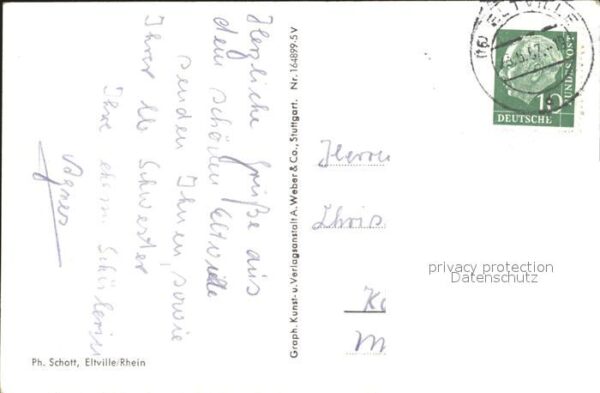 Herzliche Grüße aus
dem schönen Eltville
senden Ihnen, sowie
Ihrer lb Schwester
Ihre ehem Schülerin
Agnes
Ph. Schott, Eltville/Rhein
Graph. Kunst- u. Verlagsanstalt A. Weber & Co., Stuttgart. Nr. 164899.5V
(16) ELTVILLE
10
DEUTSCHE
BUNDESPOST
Herrn
Chris
privacy protection
Datenschutz
K
M